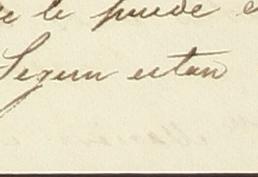 le puede
Segun estan